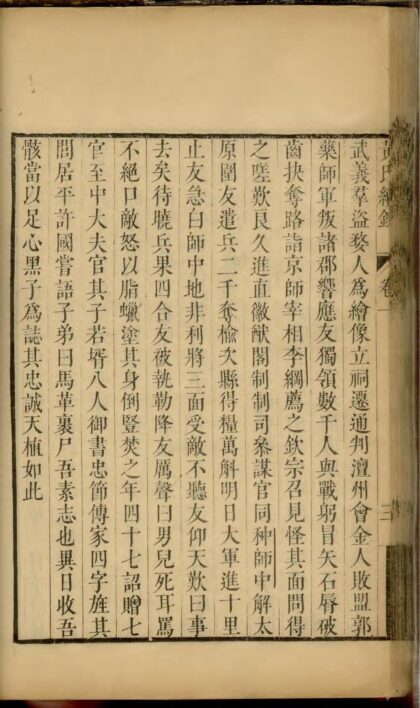 黃氏 卷一 三
武義羣盜婺人爲繪像立祠遷通判澶州會金人敗盟郭
藥師軍叛諸郡響應友獨領數千人與戰躬冒矢石脣破
齒抉奪路詣京師宰相李綱薦之欽宗召見怪其面問得
之嗟歎良久進直徽猷閣制制司叅謀官同种師中解太
原圍友遣兵二千奪榆次縣得糧萬斛明日大軍進十里
止友急白師中地非利將三面受敵不聽友仰天歎曰事
去矣待曉兵果四合友被執勒降友厲聲曰男兒死耳罵
不絕口敵怒以脂蠟塗其身倒豎焚之年四十七詔贈七
官至中大夫官其子若壻八人御書忠節傳家四字旌其
閭居平許國嘗語子弟曰馬革裹尸吾素志也異日收吾
骸當以足心黑子爲誌其忠誠天植如此